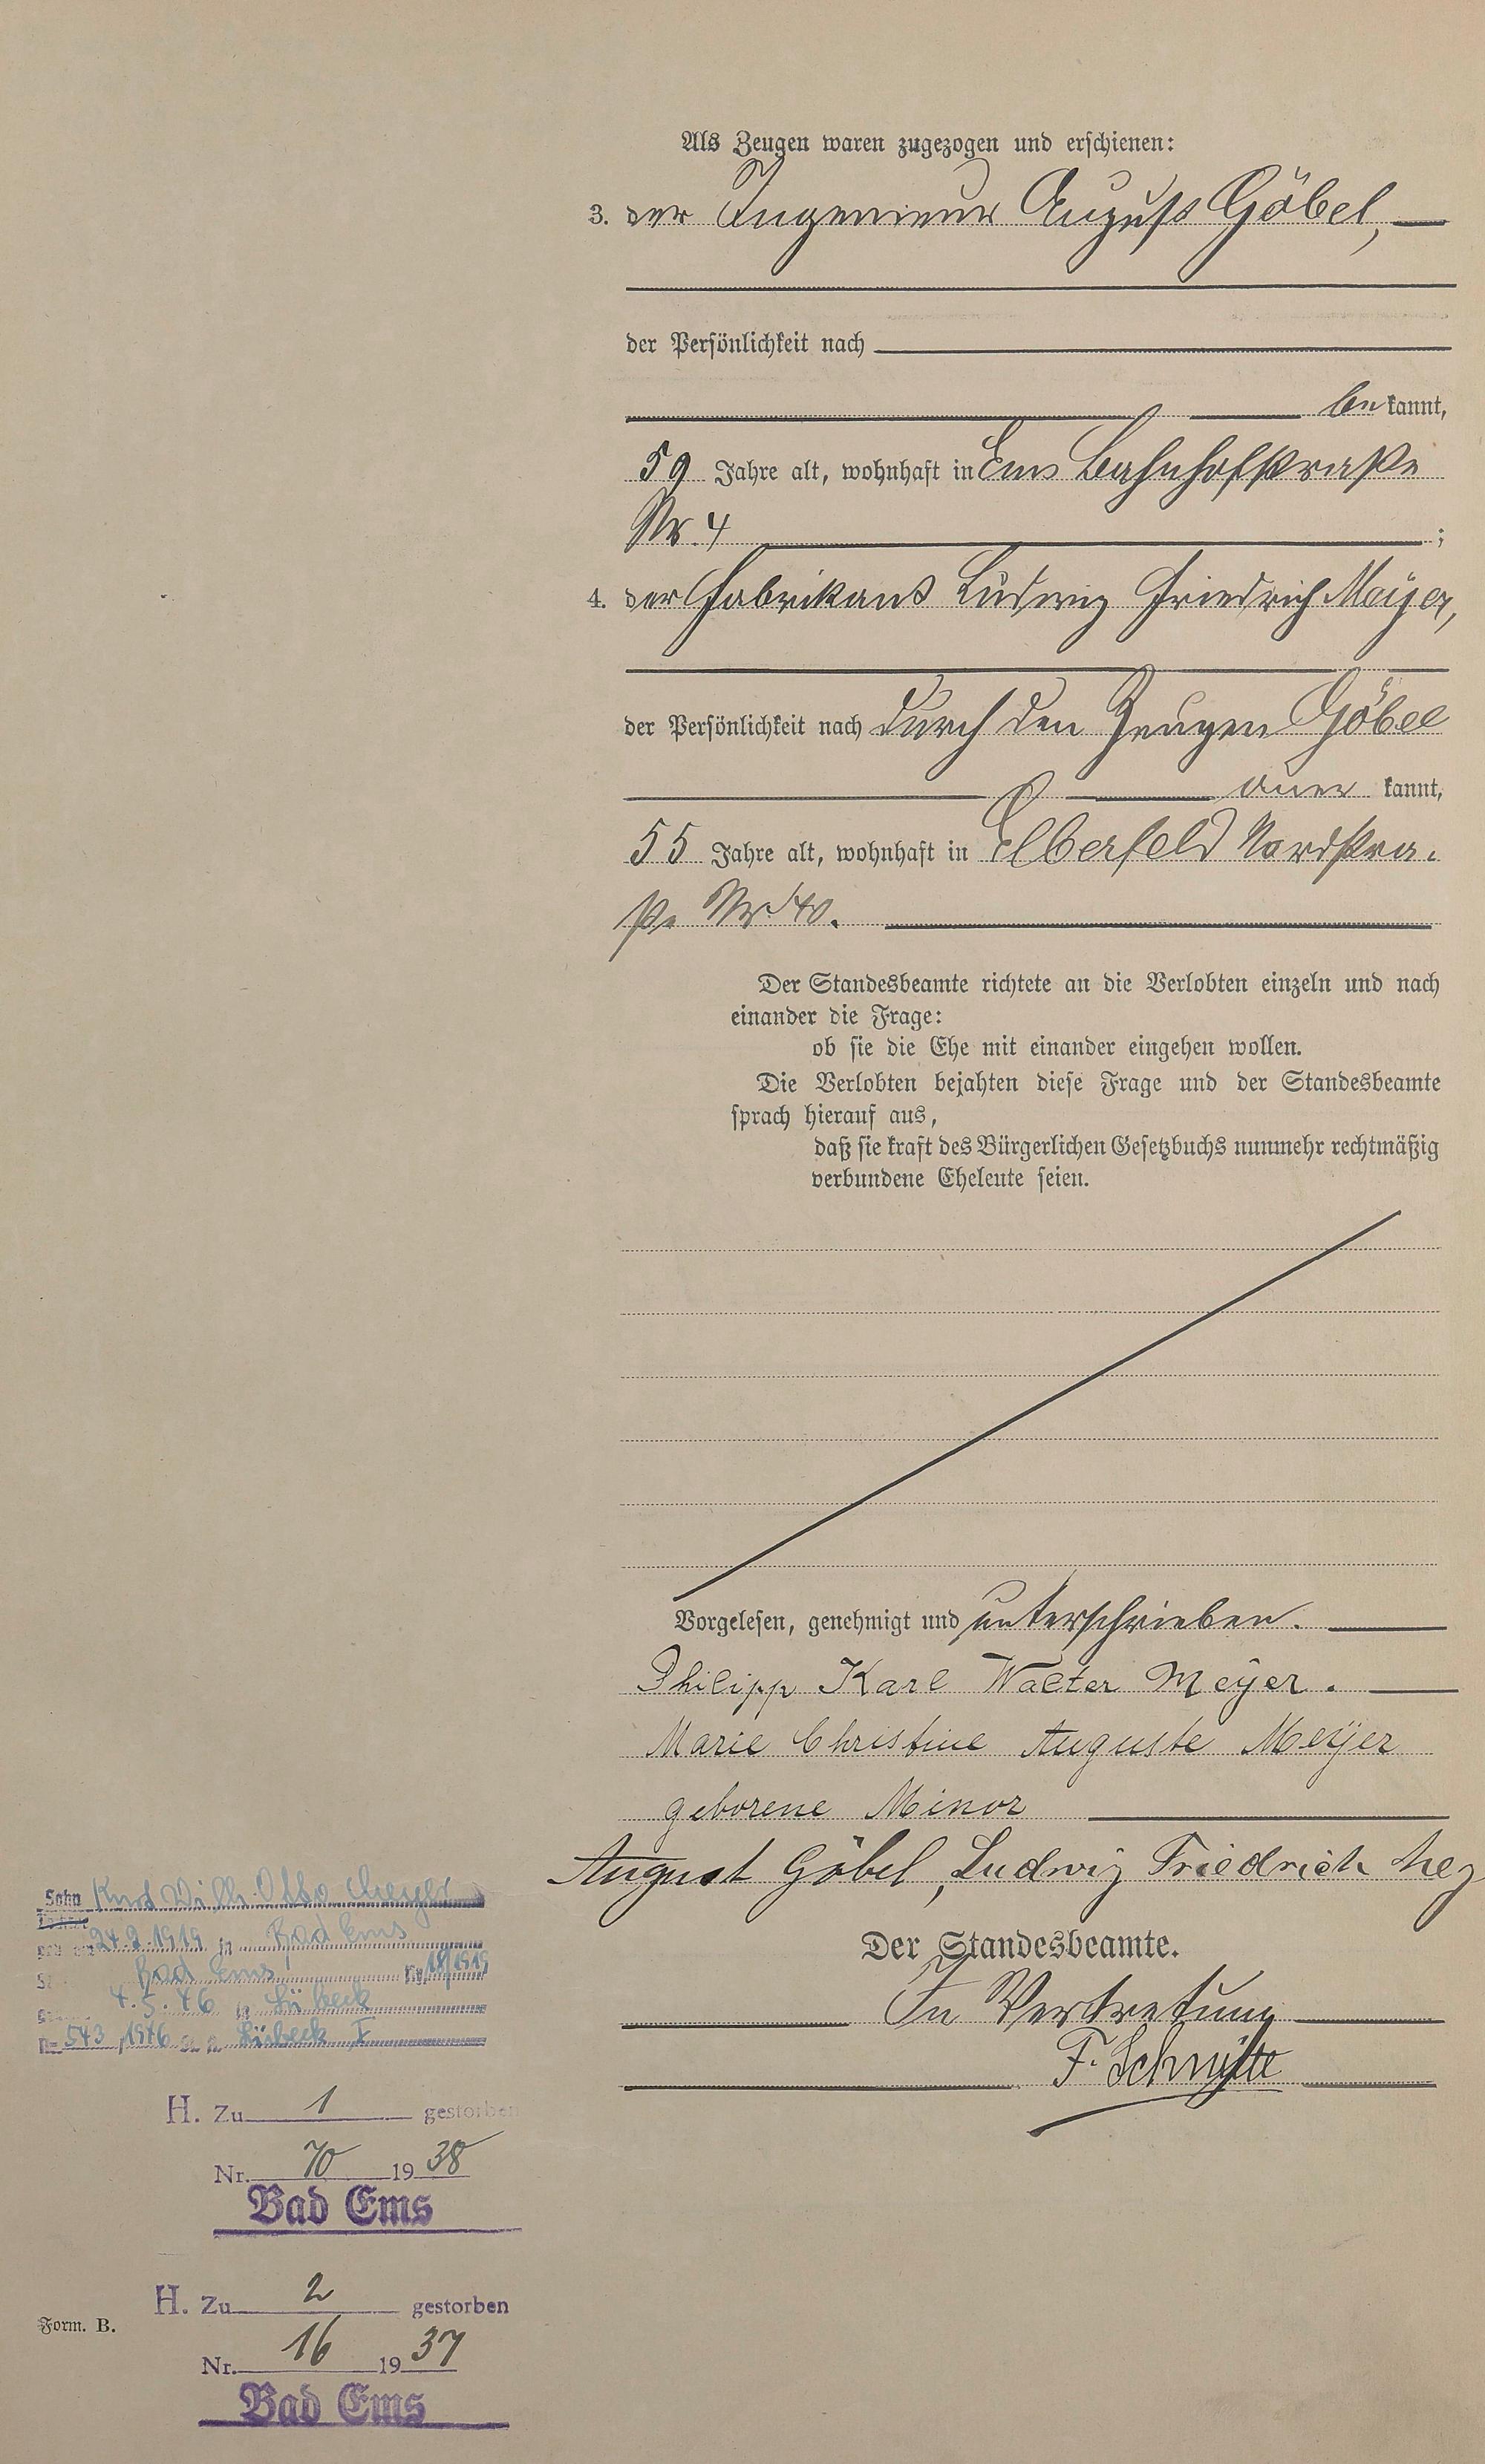 Als Zeugen waren zugezogen und erschienen:
3. der Ingenieur August Göbel,
der Persönlichkeit nach
be kannt,
59 Jahre alt, wohnhaft in Ems Bahnhofstraße
Nr. 4 ;
4. der Fabrikant Ludwig Friedrich Meyer,
der Persönlichkeit nach durch den Zeugen Göbel
aner kannt,
55 Jahre alt, wohnhaft in Elberfeld Nordstra-
ße Nr. 40.
Der Standesbeamte richtete an die Verlobten einzeln und nach
einander die Frage:
ob sie die Ehe mit einander eingehen wollen.
Die Verlobten bejahten diese Frage und der Standesbeamte
sprach hierauf aus,
daß sie kraft des Bürgerlichen Gesetzbuchs nunmehr rechtmäßig
verbundene Eheleute seien.
Vorgelesen, genehmigt und unterschrieben.
Philipp Karl Walter Meyer.
Marie Christine Auguste Meyer
geborene Minor
August Göbel, Ludwig Friedrich Mey
Der Standesbeamte.
In Vertretung
F. Schmitte
Sohn Kurt Willi Otto Meyer
24.2.1919 in Bad Ems
Bad Ems Nr. 18/1919
4.5.46 in Lübeck
Nr. 543/1946 Lübeck I
H. Zu 1 gestorben
Nr. 70 1938
Bad Ems
H. Zu 2 gestorben
Nr. 16 1937
Bad Ems
Form. B.